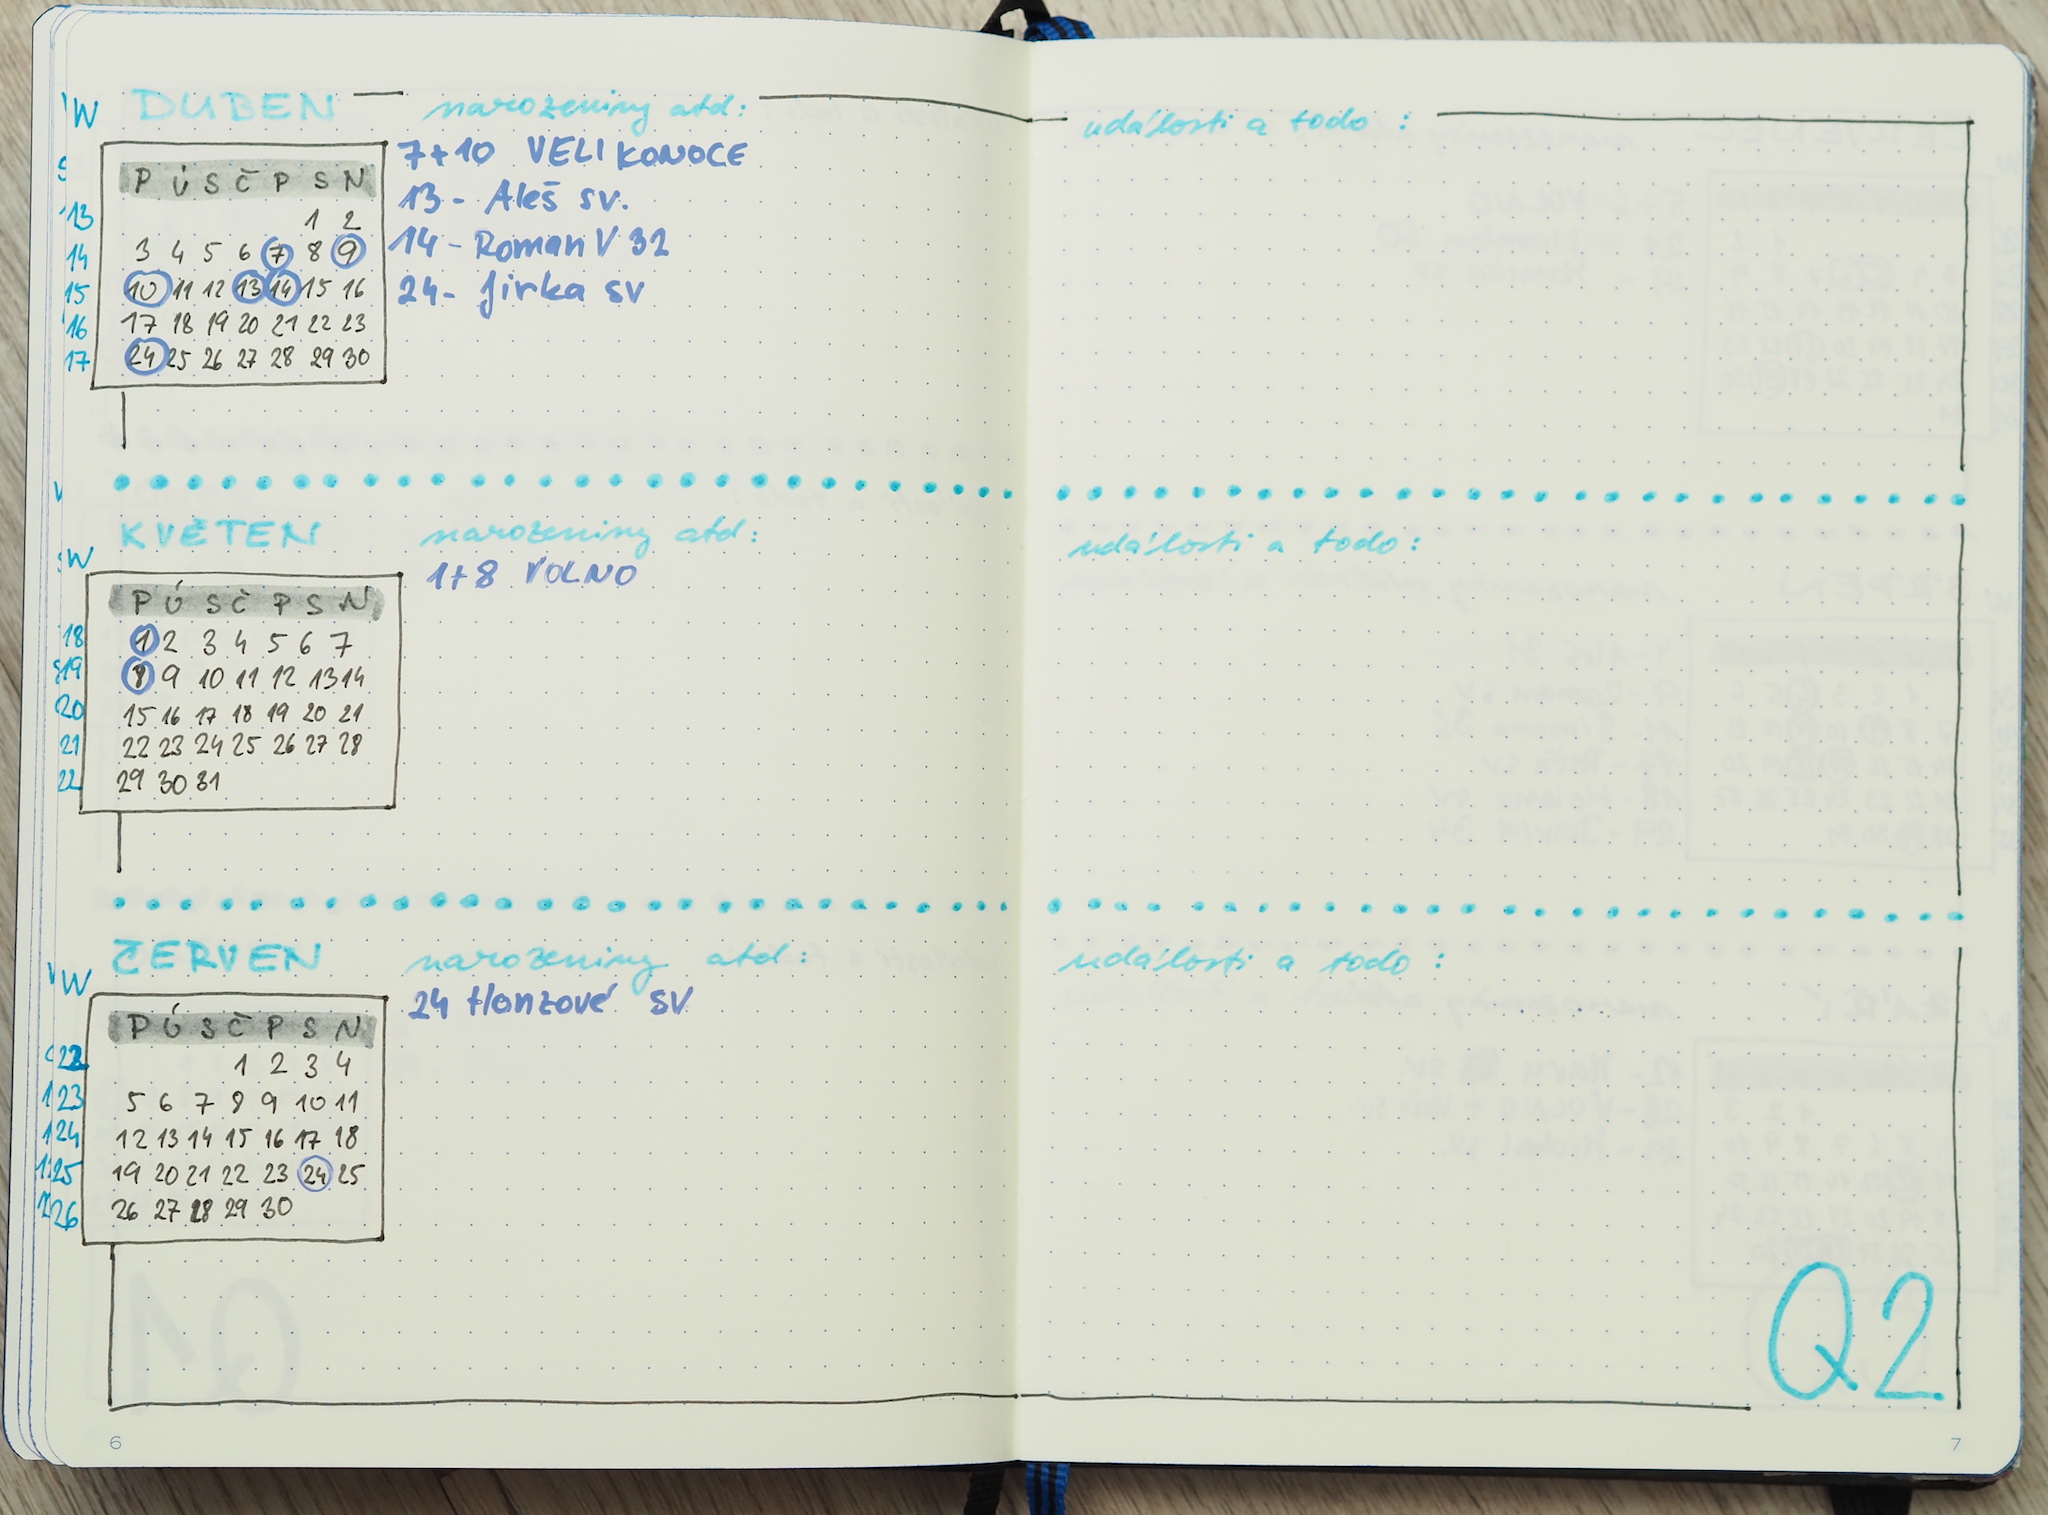 W DUBEN narozeniny atd: události a todo:
P Ú S Č P S N 7+10 VELIKONOCE
13 1 2 13 - Aleš sv.
14 3 4 5 6 7 8 9 14 - Roman V 32
15 10 11 12 13 14 15 16 24 - Jirka sv
16 17 18 19 20 21 22 23
17 24 25 26 27 28 29 30
KVĚTEN narozeniny atd: události a todo:
W 1+8 VOLNO
P Ú S Č P S N
18 1 2 3 4 5 6 7
19 8 9 10 11 12 13 14
20 15 16 17 18 19 20 21
21 22 23 24 25 26 27 28
22 29 30 31
ČERVEN narozeniny atd: události a todo:
W 24 Honzové sv
P Ú S Č P S N
22 1 2 3 4
23 5 6 7 8 9 10 11
24 12 13 14 15 16 17 18
25 19 20 21 22 23 24 25
26 26 27 28 29 30
Q2
6 7